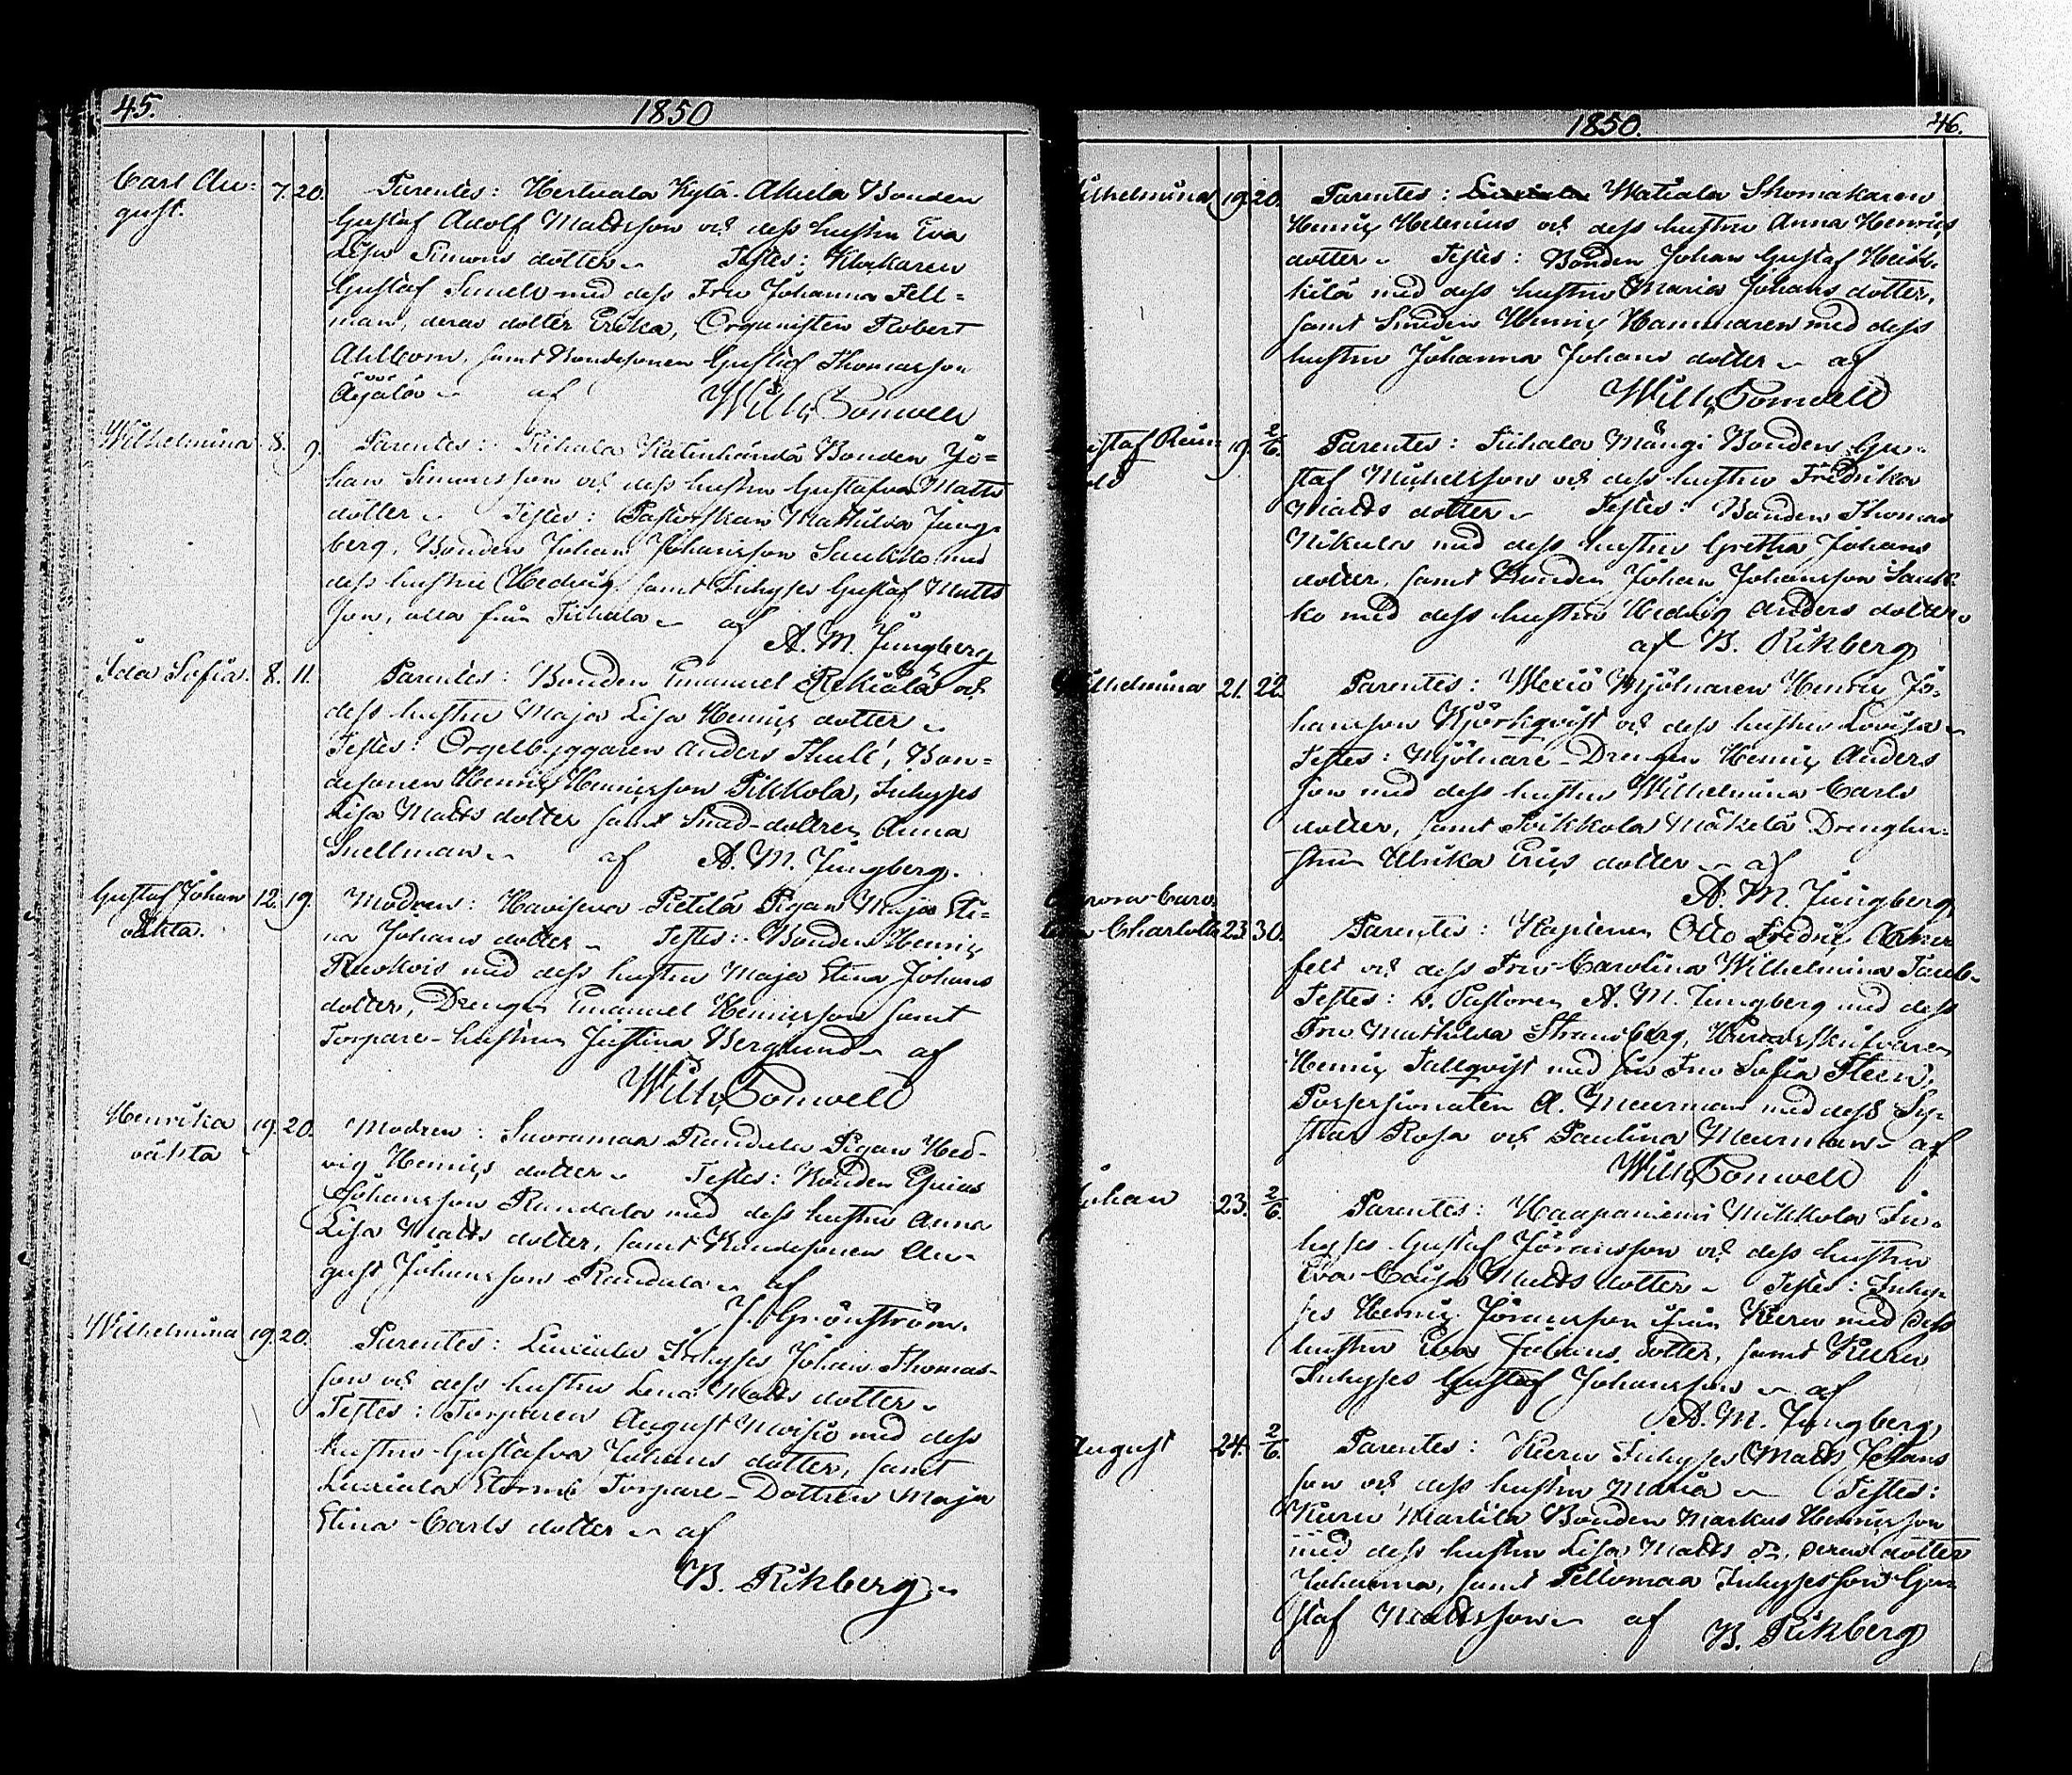 45. 1850
Carl Au= 7. 20. Parentes: Hertuala Kylä-Akula Bonden
gust. Gustaf Adolf Mattsson och dess hustru Eva
Lisa Simons dotter. Testes: Klockaren
Gustaf Sunell med dess Fru Johanna Fell=
man, deras dotter Erika, Organisten Robert
Ahlbom, samt Bondesonen Gustaf Thomasson
af Wilh. Bonwell
Wilhelmina 8. 9. Parentes: Bonden Jo=
han Simonsson och dess hustru Gustafva Matts
dotter. Testes: Pastorskan Mathilda Jung-
berg, Bonden Johan Johansson Saukko med
dess hustru Hedvig samt Inhyses Gustaf Matts
son, alla från af
A. M. Jungberg
Ida Sofia. 8. 11. Parentes: Bonden Emanuel Rekiälä och
dess hustru Maja Lisa Henrics dotter
Testes: Orgelbyggaren Anders Thulé, Bon=
desonen Henric Henricsson Pikkola, Inhyses
Lisa Matts dotter samt Smed-dottren Anna
Snellman. af A. M. Jungberg.
Gustaf Johan 12. 19. Modren: Pietilä Pigan Maja Sti=
oäkta. na Johans dotter. Testes: Bonden Henric
med dess hustru Maja Stina Johans
dotter, Drengen Emanuel Henricsson samt
Torpare-hustrun Justina Berglund. af
Wilh. Bonwell
Henrika 19. 20. Modren: Suoramaa Randala Pigan Hed-
oäkta vig Henrics dotter. Testes: Bonden Esaias
Johansson Randala med dess hustru Anna
Lisa Matts dotter, samt Bondesonen Au-
gust Johansson Randala. af
J. Grönström.
Wilhelmina 19. 20. Parentes: Liuxiala Inhyses Johan Thomas-
son och dess hustru Lena Matts dotter
Testes: Torparen August Moisio med dess
hustru Gustafva Johans dotter, samt
Liuxiala Stormi Torpare-Dottren Maja
Stina Carls dotter. af
B. Rikberg.
1850. 46.
ilhelmina 19. 20. Parentes: Watiala Skomakaren
Henric Helenius och dess hustru Anna Henrics
dotter. Testes: Bonden Johan Gustaf Heik-
kilä med dess hustru Maria Johans dotter,
samt Smeden Henric Hammaren med dess
hustru Johanna Johans dotter. af
Wilh. Bonwell
ustaf Rein- 19. 2/6. Parentes: Mångi Bonden Gu-
old staf Michelsson och dess hustru Fredrika
Matts dotter. Testes: Bonden Thomas
Nikula med dess hustru Gretha Johans
dotter, samt Bonden Johan Johansson Sauk-
ko med dess hustru Hedvig Anders dotter.
af B. Rikberg
ilhelmina 21. 22. Parentes: Wexiö Mjölnaren Henric Jo-
hansson Björkqvist och dess hustru Lovisa
Testes: Mjölnare-Drengen Henric Anders
son med dess hustru Wilhelmina Carls
dotter, samt Mäkelä Drenghu-
strun Ulrika Erics dotter. af
A. M. Jungberg
rora Caro-
lina Charlotta 23. 30. Parentes: Kaptenen Otto Fredric Armer
felt och dess Fru Carolina Wilhelmina Taube
Testes: v. Pastoren A. M. Jungberg med dess
Fru Mathilda Strandberg, Häradsskrifvaren
Henric Tallqvist med sin Fru Sofia Steen,
Possessionaten A. Meurman med dess Sy-
strar Rosa och Paulina Meurman. af
Wilh. Bonwell
ohan 23. 2/6. Parentes: Haapaniemi Mikkola In-
hyses Gustaf Jöransson och dess hustru
Eva Caisa Matts dotter. Testes: Inhy-
ses Henric Jöransson från Kieru med dess
hustru Eva Johans dotter, samt Kieru
Inhyses Gustaf Johansson. af
A. M. Jungberg
August 24. 2/6. Parentes: Kieru Inhyses Matts Johans
son och dess hustru Maria. Testes:
Kieru Marttila Bonden Markus Henricsson
med dess hustru Lisa Matts dr, deras dotter
Johanna, samt Pellomaa Inhysesson Gu-
staf Mattsson. af B. Rikberg